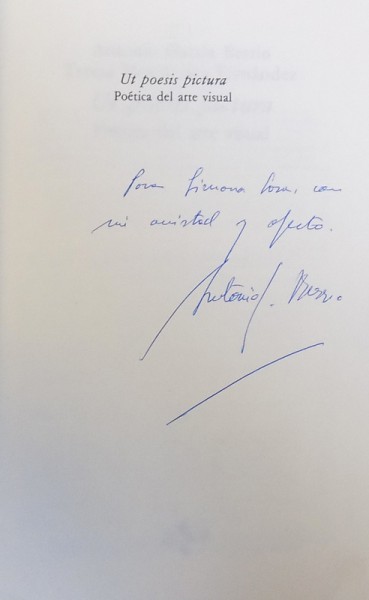 Ut poesis pictura
Poética del arte visual
Para Simona con
mi amistad y afecto.
Antonio G. Berrio